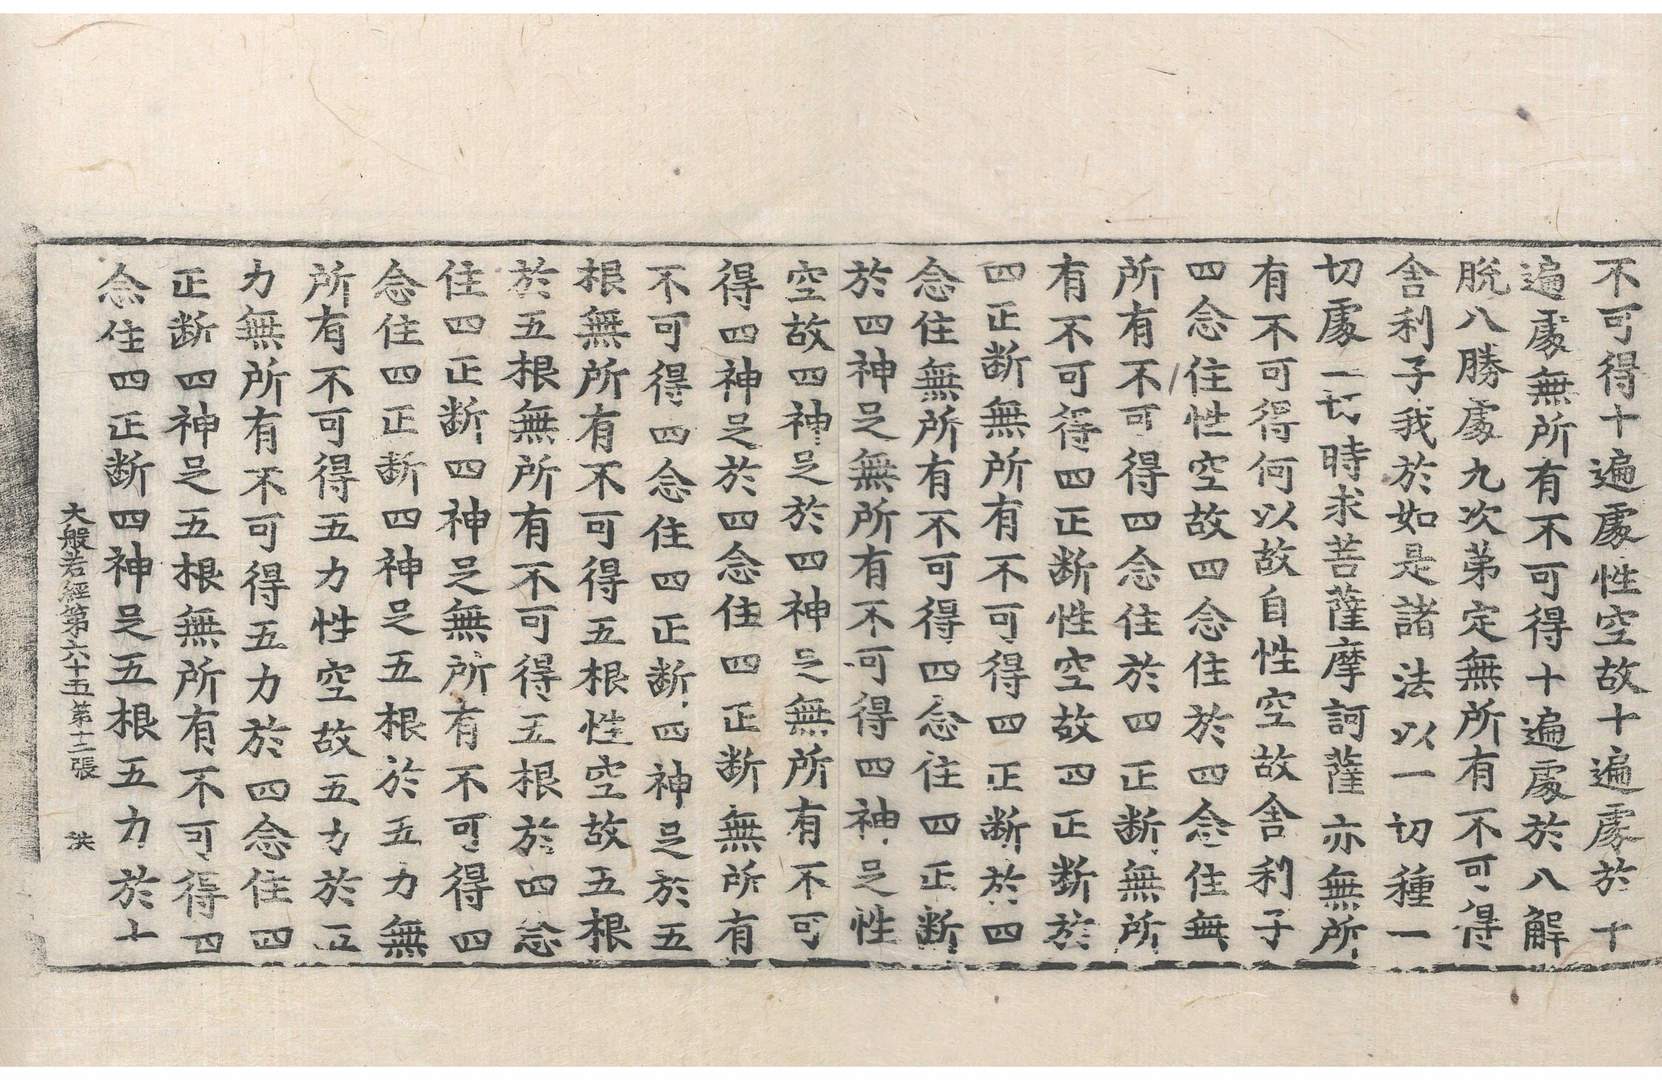 不可得十遍處性空故十遍處於十
遍處無所有不可得十遍處於八解
脫八勝處九次第定無所有不可得
舍利子我於如是諸法以一切種一
切處一切時求菩薩摩訶薩亦無所
有不可得何以故自性空故舍利子
四念住性空故四念住於四念住無
所有不可得四念住於四正斷無所
有不可得四正斷性空故四正斷於
四正斷無所有不可得四正斷於四
念住無所有不可得四念住四正斷
於四神足無所有不可得四神足性
空故四神足於四神足無所有不可
得四神足於四念住四正斷無所有
不可得四念住四正斷四神足於五
根無所有不可得五根性空故五根
於五根無所有不可得五根於四念
住四正斷四神足無所有不可得四
念住四正斷四神足五根於五力無
所有不可得五力性空故五力於五
力無所有不可得五力於四念住四
正斷四神足五根無所有不可得四
念住四正斷四神足五根五力於七
大般若經第六十五 第十二張 洪